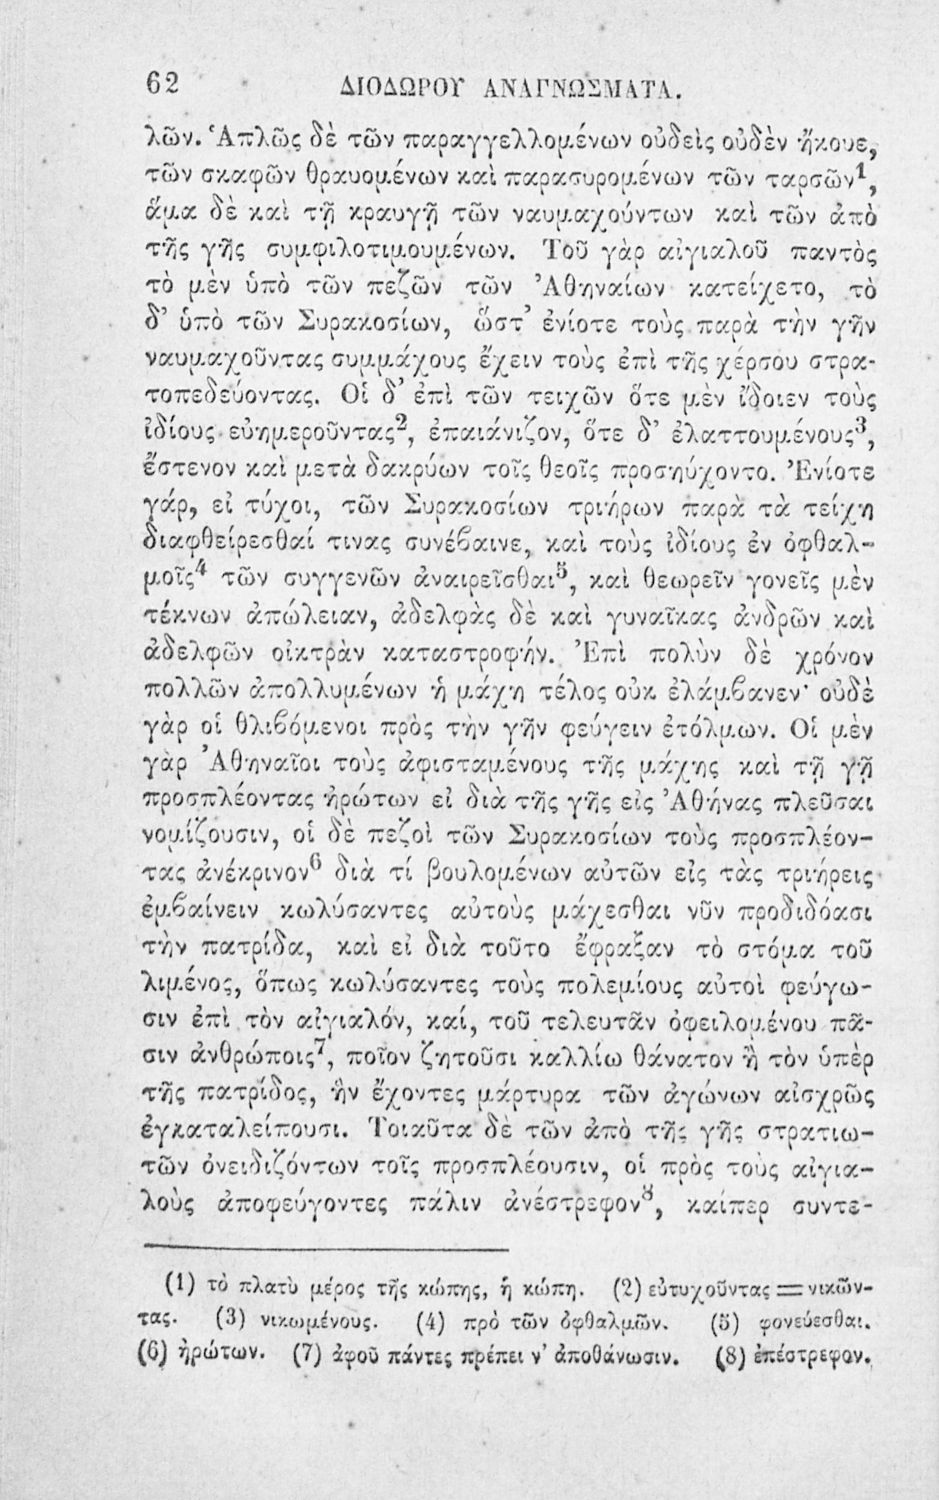 62 ΔΙΟΔΩΡΟΥ ΑΝΑΓΝΩΣΜΑΤΑ.
λῶν. Ἁπλῶς δὲ τῶν παραγγελλομένων οὐδεὶς οὐδὲν ἤκουε,
τῶν σκαφῶν θραυομένων καὶ παρασυρομένων τῶν ταρσῶν¹,
ἅμα δὲ καὶ τῇ κραυγῇ τῶν ναυμαχούντων καὶ τῶν ἀπὸ
τῆς γῆς συμφιλοτιμουμένων. Τοῦ γὰρ αἰγιαλοῦ παντὸς
τὸ μὲν ὑπὸ τῶν πεζῶν τῶν Ἀθηναίων κατείχετο, τὸ
δ' ὑπὸ τῶν Συρακοσίων, ὥστ' ἐνίοτε τοὺς παρὰ τὴν γῆν
ναυμαχοῦντας συμμάχους ἔχειν τοὺς ἐπὶ τῆς χέρσου στρα-
τοπεδεύοντας. Οἱ δ' ἐπὶ τῶν τειχῶν ὅτε μὲν ἴδοιεν τοὺς
ἰδίους εὐημεροῦντας², ἐπαιάνιζον, ὅτε δ' ἐλαττουμένους³,
ἔστενον καὶ μετὰ δακρύων τοῖς θεοῖς προσηύχοντο. Ἐνίοτε
γάρ, εἰ τύχοι, τῶν Συρακοσίων τριήρων παρὰ τὰ τείχη
διαφθείρεσθαί τινας συνέϐαινε, καὶ τοὺς ἰδίους ἐν ὀφθαλ-
μοῖς⁴ τῶν συγγενῶν ἀναιρεῖσθαι⁵, καὶ θεωρεῖν γονεῖς μὲν
τέκνων ἀπώλειαν, ἀδελφὰς δὲ καὶ γυναῖκας ἀνδρῶν καὶ
ἀδελφῶν οἰκτρὰν καταστροφήν. Ἐπὶ πολὺν δὲ χρόνον
πολλῶν ἀπολλυμένων ἡ μάχη τέλος οὐκ ἐλάμϐανεν· οὐδὲ
γὰρ οἱ θλιϐόμενοι πρὸς τὴν γῆν φεύγειν ἐτόλμων. Οἱ μὲν
γὰρ Ἀθηναῖοι τοὺς ἀφισταμένους τῆς μάχης καὶ τῇ γῇ
προσπλέοντας ἠρώτων εἰ διὰ τῆς γῆς εἰς Ἀθήνας πλεῦσαι
νομίζουσιν, οἱ δὲ πεζοὶ τῶν Συρακοσίων τοὺς προσπλέον-
τας ἀνέκρινον⁶ διὰ τί βουλομένων αὐτῶν εἰς τὰς τριήρεις
ἐμϐαίνειν κωλύσαντες αὐτοὺς μάχεσθαι νῦν προδιδόασι
τὴν πατρίδα, καὶ εἰ διὰ τοῦτο ἔφραξαν τὸ στόμα τοῦ
λιμένος, ὅπως κωλύσαντες τοὺς πολεμίους αὐτοὶ φεύγω-
σιν ἐπὶ τὸν αἰγιαλόν, καί, τοῦ τελευτᾶν ὀφειλομένου πᾶ-
σιν ἀνθρώποις⁷, ποῖον ζητοῦσι καλλίω θάνατον ἢ τὸν ὑπὲρ
τῆς πατρίδος, ἣν ἔχοντες μάρτυρα τῶν ἀγώνων αἰσχρῶς
ἐγκαταλείπουσι. Τοιαῦτα δὲ τῶν ἀπὸ τῆς γῆς στρατιω-
τῶν ὀνειδιζόντων τοῖς προσπλέουσιν, οἱ πρὸς τοὺς αἰγια-
λοὺς ἀποφεύγοντες πάλιν ἀνέστρεφον⁸, καίπερ συντε-
(1) τὸ πλατὺ μέρος τῆς κώπης, ἡ κώπη. (2) εὐτυχοῦντας = νικῶν-
τας. (3) νικωμένους. (4) πρὸ τῶν ὀφθαλμῶν. (5) φονεύεσθαι.
(6) ἠρώτων. (7) ἀφοῦ πάντες πρέπει ν' ἀποθάνωσιν. (8) ἐπέστρεφον.